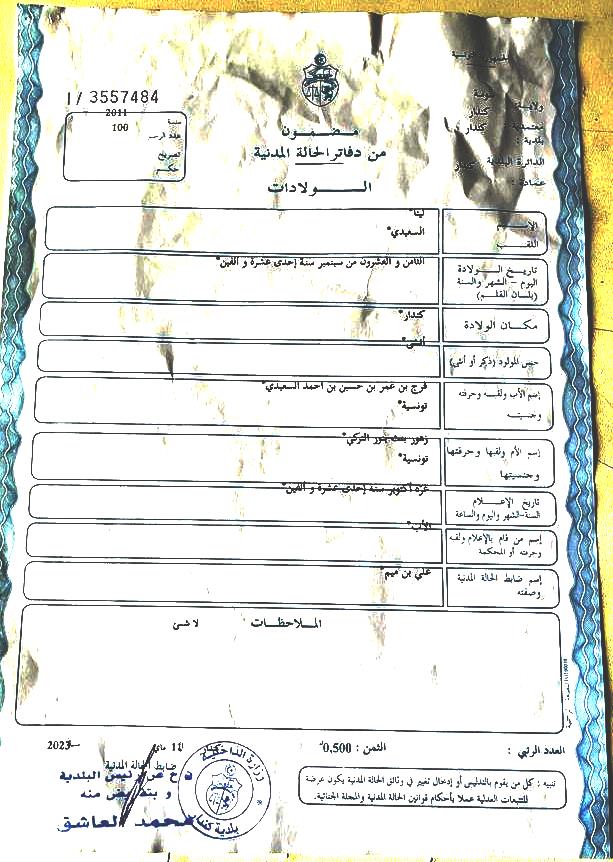 I / 3557484
سنة 2011
عدد الرسم 100
تصريح
حكم
ولاية
معتمدية كندار
بلدية : كندار
الدائرة البلدية كندار
عمادة :
مضمون
من دفاتر الحالة المدنية
الولادات
الإسم لينا*
اللقب السعيدي*
تاريخ الولادة
اليوم – الشهر والسنة
(بلسان القلم)
الثامن و العشرون من سبتمبر سنة إحدى عشرة و ألفين*
مكان الولادة كندار*
جنس المولود (ذكر أو أنثى) أنثى*
إسم الأب ولقبه وحرفته
وجنسيته
فرج بن عمر بن حسين بن احمد السعيدي*
تونسية*
إسم الأم ولقبها وحرفتها
وجنسيتها
زهور بنت التركي*
تونسية*
تاريخ الإعلام
السنة-الشهر واليوم والساعة
غرة أكتوبر سنة إحدى عشرة و ألفين*
إسم من قام بالإعلام ولقبه
وحرفته أو المحكمة
الأب*
إسم ضابط الحالة المدنية
وصفته
علي بن ميم*
الملاحظات لا شئ
العدد الرتبي :
الثمن : 0,500د
11 ماي 2023
ضابط الحالة المدنية
رئيس البلدية
و بتفويض منه
محمد العاشق
وزارة الداخلية
بلدية كندار
تنبيه : كل من يقوم بالتدليس أو إدخال تغيير في وثائق الحالة المدنية يكون عرضة
للتتبعات العدلية عملا بأحكام قوانين الحالة المدنية والمجلة الجنائية.